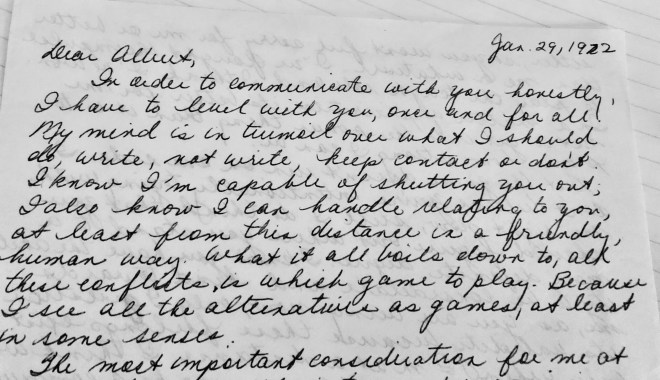 Jan. 29, 1972
Dear Albert,
In order to communicate with you honestly,
I have to level with you, once and for all.
My mind is in turmoil over what I should
do, write, not write, keep contact or don't.
I know I'm capable of shutting you out;
I also know I can handle relating to you,
at least from this distance in a friendly,
human way. What it all boils down to, all
these conflicts, is which game to play. Because
I see all the alternatives as games, at least
in some senses.
The most important consideration for me at